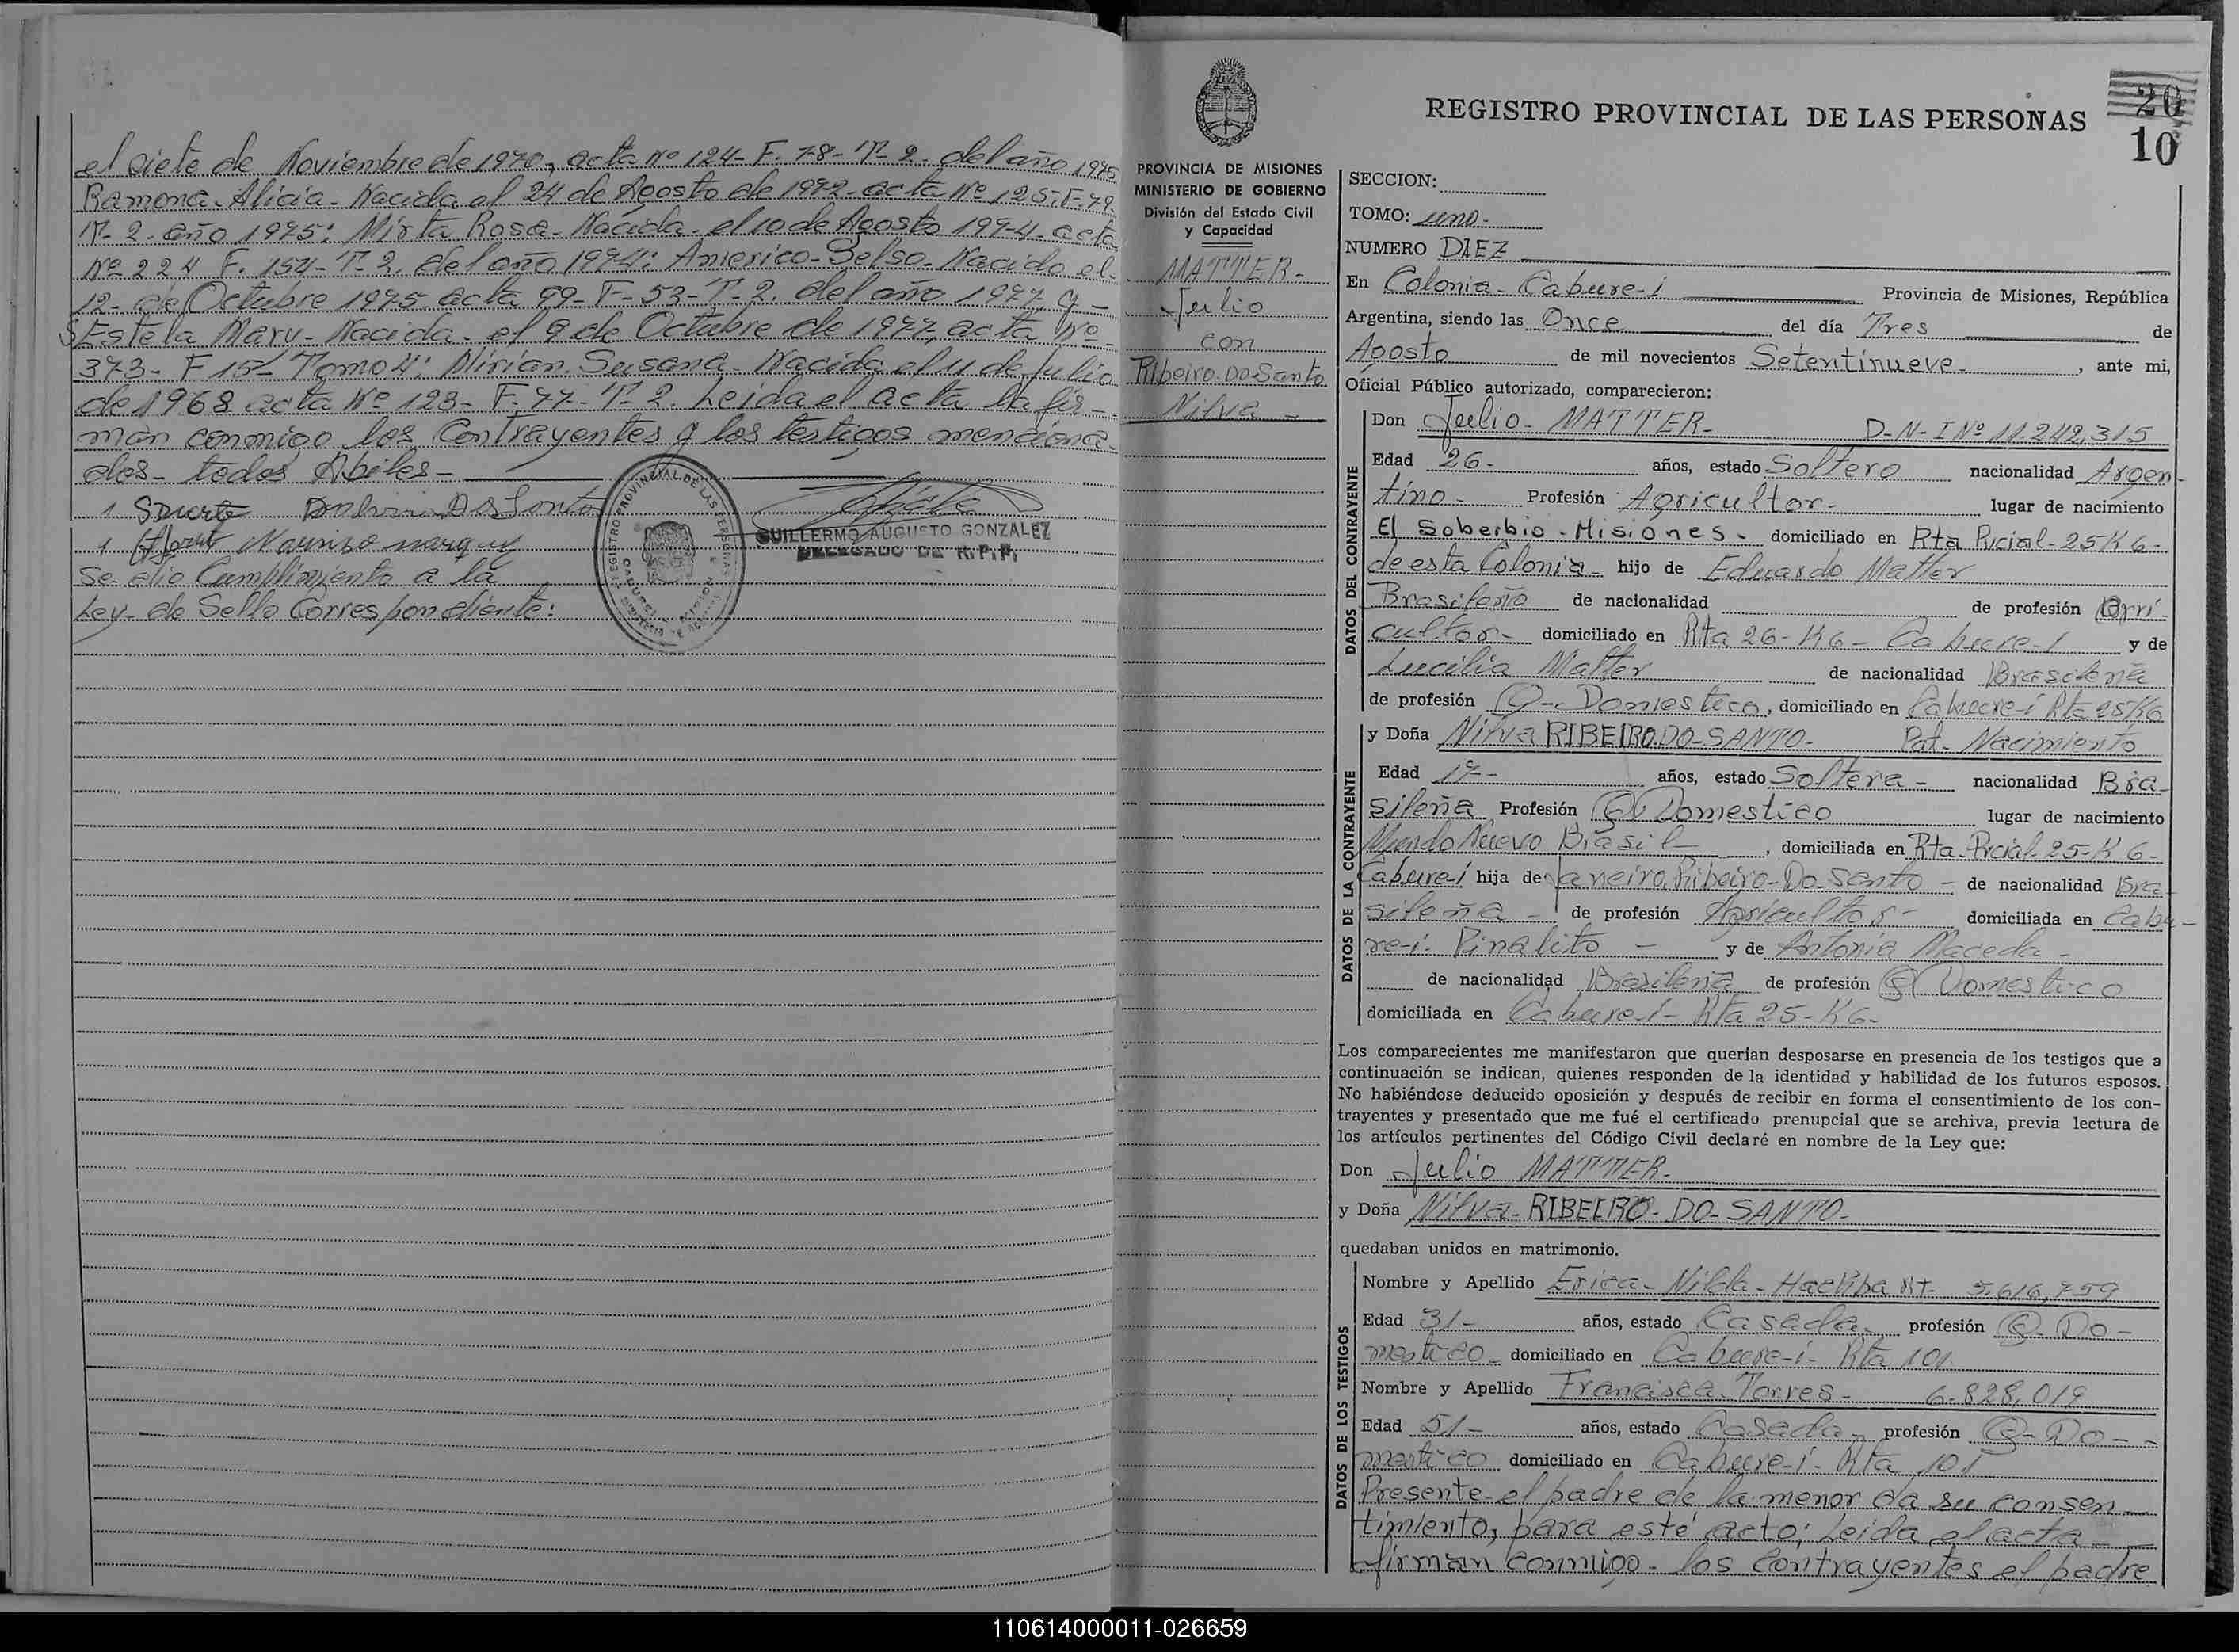 el siete de Noviembre de 1970, acta nº 124- F. 78- Tº 2- del año 1975
Ramona- Alicia- Nacida el 24 de Agosto de 1972- acta Nº 125- F-79
Tº- 2- año 1975: Mirta Rosa- Nacida- el 10 de Agosto 1974- acta
Nº 224 F. 154- T- 2. del año 1974: Americo- Selso- Nacido el-
12- de Octubre 1975 acta 99- F- 53- T- 2. del año 1977 y-
Estela Mary- Nacida- el 9 de Octubre de 1977, acta Nº-
373- F 15- Tomo 4: Mirian- Susana- Nacida el 11 de Julio
de 1968 acta Nº 123- F. 77- Tº 2. Leida el acta la fir-
man conmigo los Contrayentes y los testigos menciona-
dos- todos Abiles-
Dos Santos
GUILLERMO AUGUSTO GONZALEZ
DELEGADO DE R.P.P.
REGISTRO PROVINCIAL DE LAS PERSONAS
Se dio Cumplimiento a la
Ley- de Sello Correspondiente:
REGISTRO PROVINCIAL DE LAS PERSONAS
20
10
PROVINCIA DE MISIONES
MINISTERIO DE GOBIERNO
División del Estado Civil
y Capacidad
MATTER-
Julio
con
Ribeiro-Do-Santo
Nilva-
SECCION:
TOMO: uno-
NUMERO DIEZ
En Colonia- Cabure-i Provincia de Misiones, República
Argentina, siendo las Once del día Tres de
Agosto de mil novecientos Setentinueve- , ante mi,
Oficial Público autorizado, comparecieron:
DATOS DEL CONTRAYENTE
Don Julio- MATTER- D-N-I Nº 11.242,315
Edad 26- años, estado Soltero nacionalidad Argen-
tino- Profesión Agricultor- lugar de nacimiento
El Soberbio- Misiones- domiciliado en Rta Prcial- 25 K 6-
de esta Colonia- hijo de Eduardo Matter
Brasileño de nacionalidad de profesión Agri-
cultor- domiciliado en Rta 26- K6- Cabure-i y de
Lucilia Matter de nacionalidad Brasileña
de profesión Q- Domestico, domiciliado en Cabure-i Rta 25 K6
DATOS DE LA CONTRAYENTE
y Doña Nilva RIBEIRO.DO-SANTO- Pat- Nacimiento
Edad 17- años, estado Soltera- nacionalidad Bra-
sileña Profesión Q Domestico lugar de nacimiento
Mundo Nuevo Brasil- , domiciliada en Rta- Prcial- 25- K 6-
Cabure-i hija de Janeiro Ribeiro-Do-Santo- de nacionalidad Bra-
sileña- de profesión Agricultor- domiciliada en Cabu-
re-i- Pinalito- y de Antonia Maceda-
de nacionalidad Brasileña de profesión Q Domestico
domiciliada en Cabure-i- Rta 25- K6-
Los comparecientes me manifestaron que querían desposarse en presencia de los testigos que a
continuación se indican, quienes responden de la identidad y habilidad de los futuros esposos.
No habiéndose deducido oposición y después de recibir en forma el consentimiento de los con-
trayentes y presentado que me fué el certificado prenupcial que se archiva, previa lectura de
los artículos pertinentes del Código Civil declaré en nombre de la Ley que:
Don Julio MATTER-
y Doña Nilva- RIBEIRO- DO- SANTO-
quedaban unidos en matrimonio.
DATOS DE LOS TESTIGOS
Nombre y Apellido Erica- Nilda- 5.616,759
Edad 31- años, estado Casada- profesión Q- Do-
mestico- domiciliado en Cabure-i- Rta 101
Nombre y Apellido Francisca- Torres- 6-828,019
Edad 51- años, estado Casada- profesión Q- Do-
mestico domiciliado en Cabure-i- Rta 101
Presente- el padre de la menor da su consen-
timiento, para esté acto; Leida el acta-
firman conmigo- los Contrayentes el padre
110614000011-026659